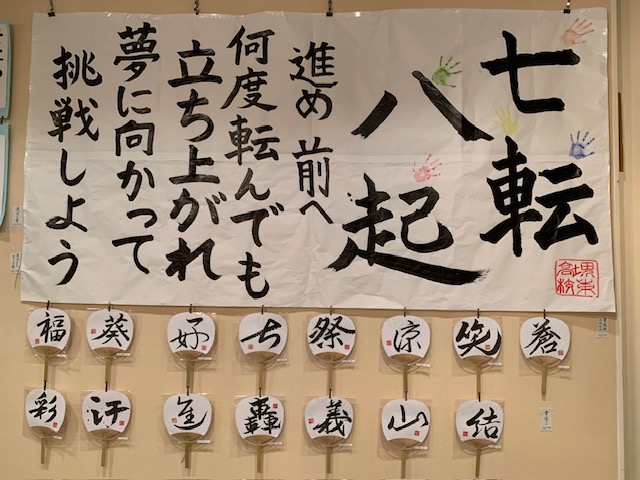 七転
八起
進め 前へ
何度転んでも
立ち上がれ
夢に向かって
挑戦しよう
堺東
高校
福
葵
好
祭
涼
笑
蒼
彩
汗
轟
義
山
結